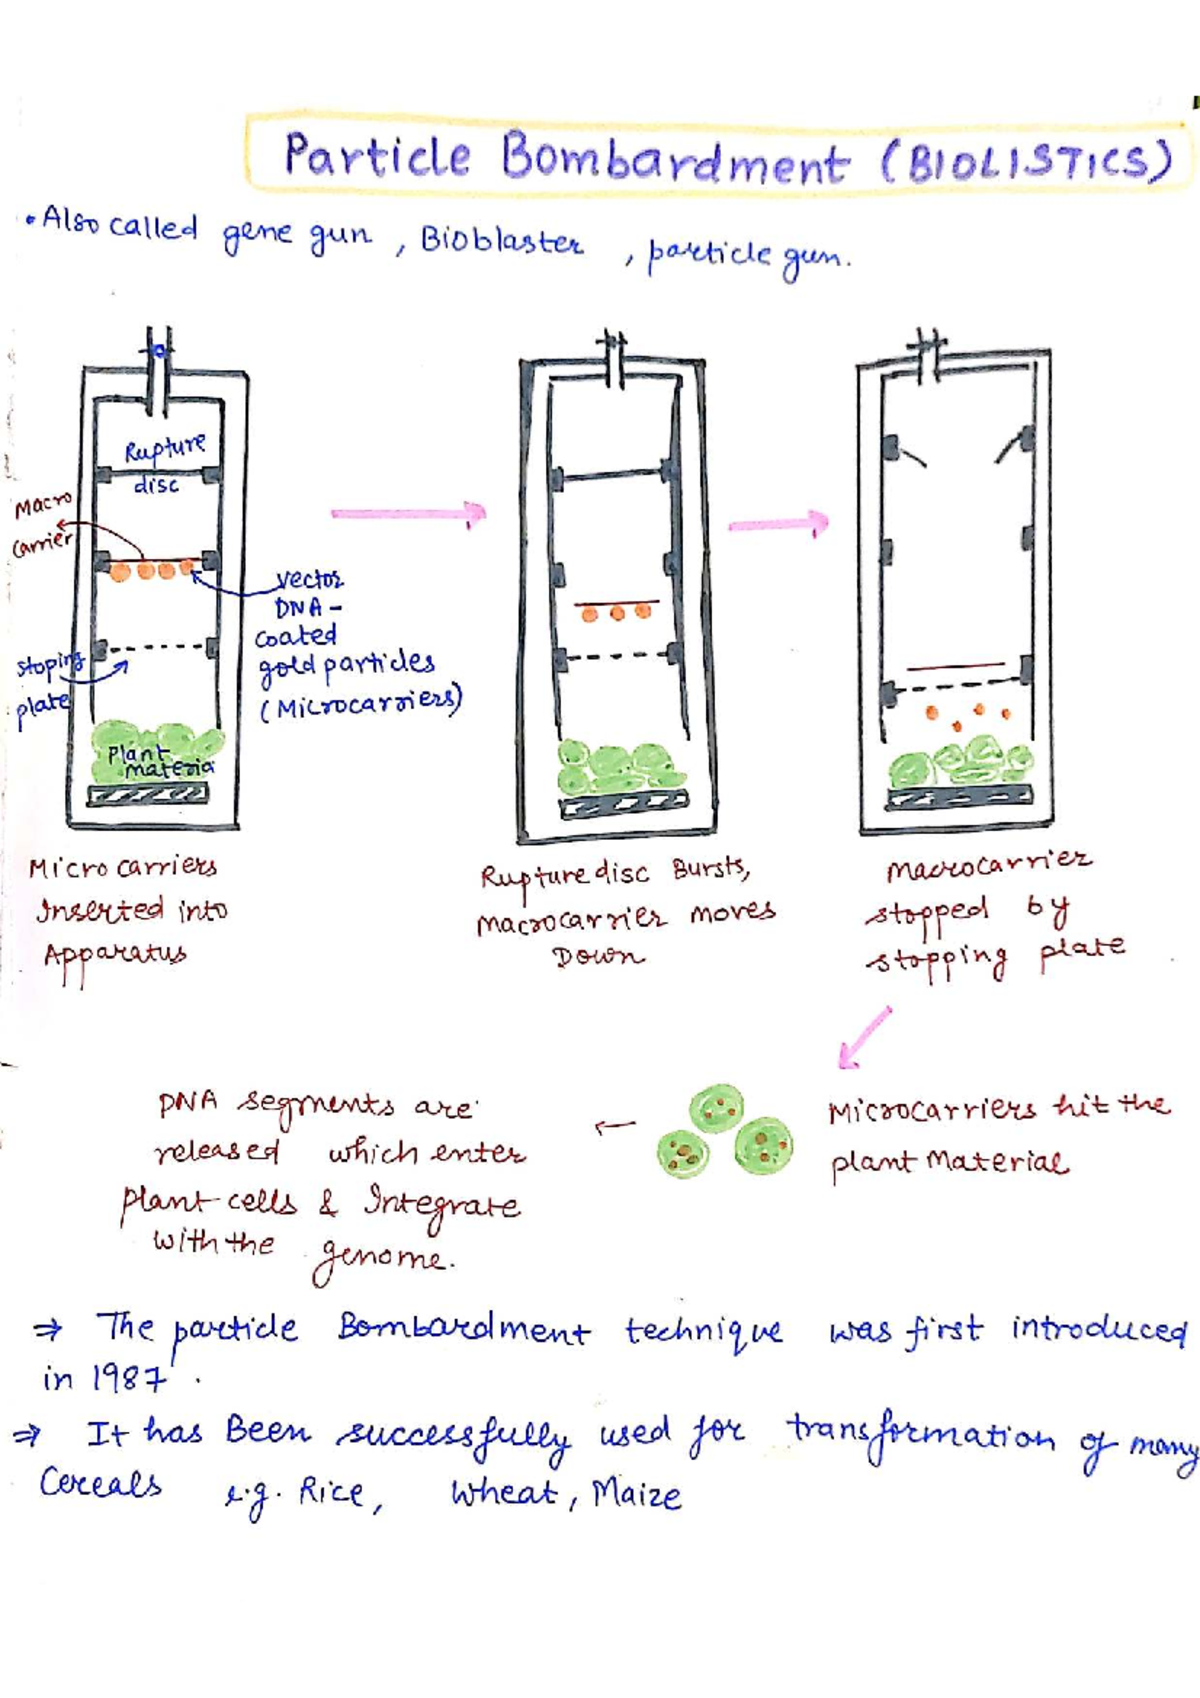 Particle Bombardment (BIOLISTICS)
• Also called gene gun, Bioblaster, particle gun.
Rupture
disc
Macro
carrier
Vector
DNA-
coated
gold particles
(Microcarriers)
stoping
plate
Plant
materia
Micro carriers
Inserted into
Apparatus
Rupture disc Bursts,
Macrocarrier moves
Down
Macrocarrier
stopped by
stopping plate
Microcarriers hit the
plant Material
DNA segments are
released which enter
plant cells & Integrate
with the genome.
⇒ The particle Bombardment technique was first introduced
in 1987.
⇒ It has Been successfully used for transformation of many
Cereals e.g. Rice, Wheat, Maize